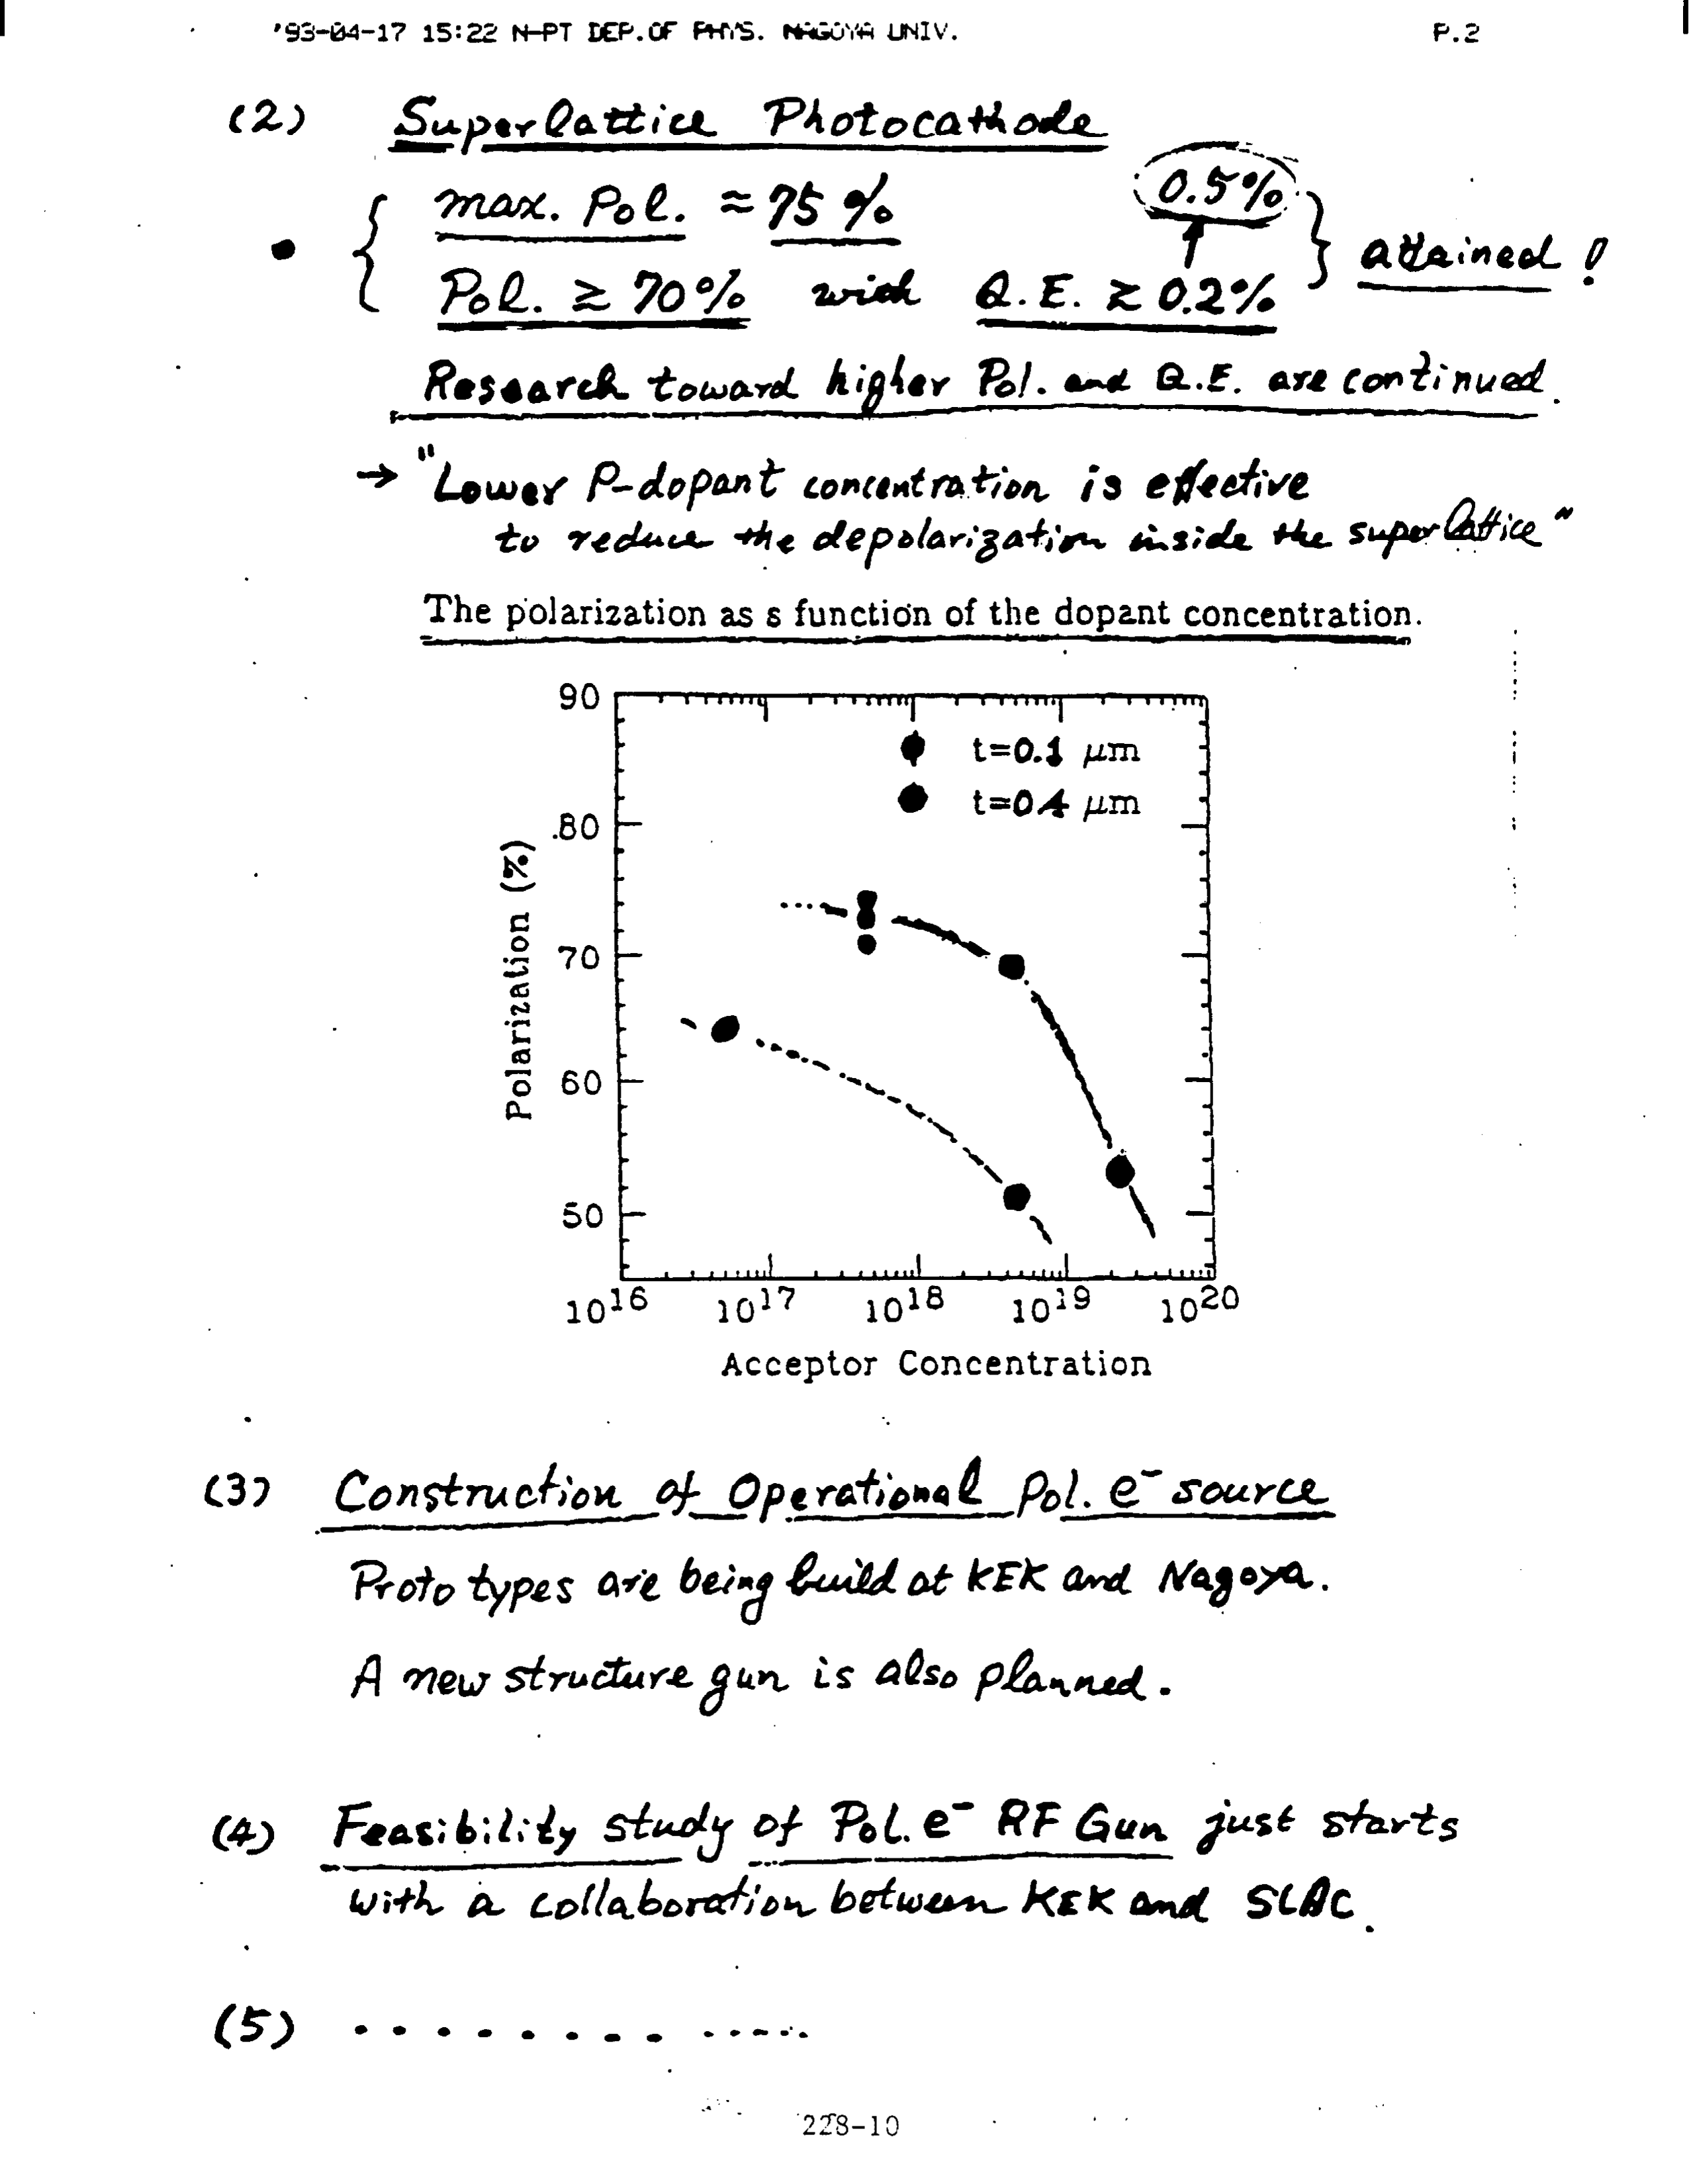 '93-04-17 15:22 N-PT DEP.OF PHYS. NAGOYA UNIV. P.2
(2) Superlattice Photocathode
0.5%
max. Pol. ≈ 75 %
• { } attained !
Pol. ≳ 70% with Q.E. ≳ 0.2%
Research toward higher Pol. and Q.E. are continued.
→ "Lower P-dopant concentration is effective
to reduce the depolarization inside the superlattice"
The polarization as s function of the dopant concentration.
90
t=0.1 μm
t=0.4 μm
80
70
60
50
Polarization (%)
10^16 10^17 10^18 10^19 10^20
Acceptor Concentration
(3) Construction of Operational Pol. e⁻ source
Prototypes are being build at KEK and Nagoya.
A new structure gun is also planned.
(4) Feasibility study of Pol. e⁻ RF Gun just starts
with a collaboration between KEK and SLAC.
(5) . . . . . . . . . . . . .
228-10